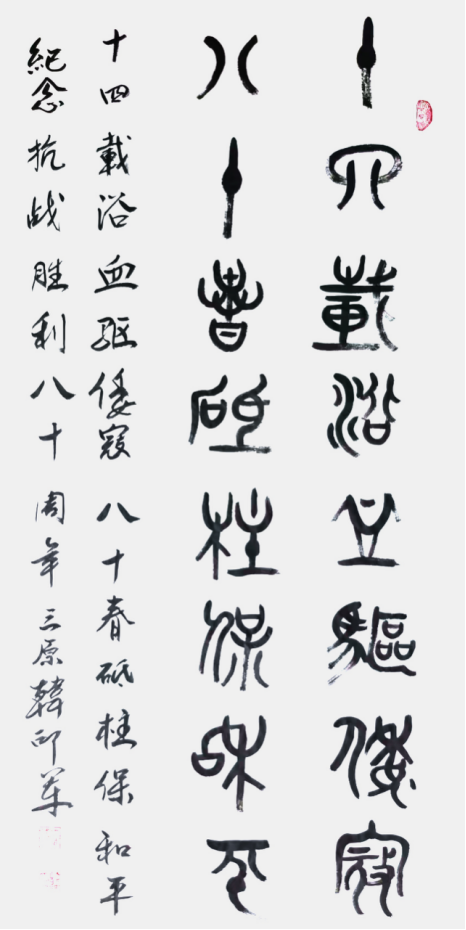 十四載浴血驅倭寇
八十春砥柱保和平
十四載浴血驱倭寇八十春砥柱保和平
紀念抗战胜利八十周年三原韓印军